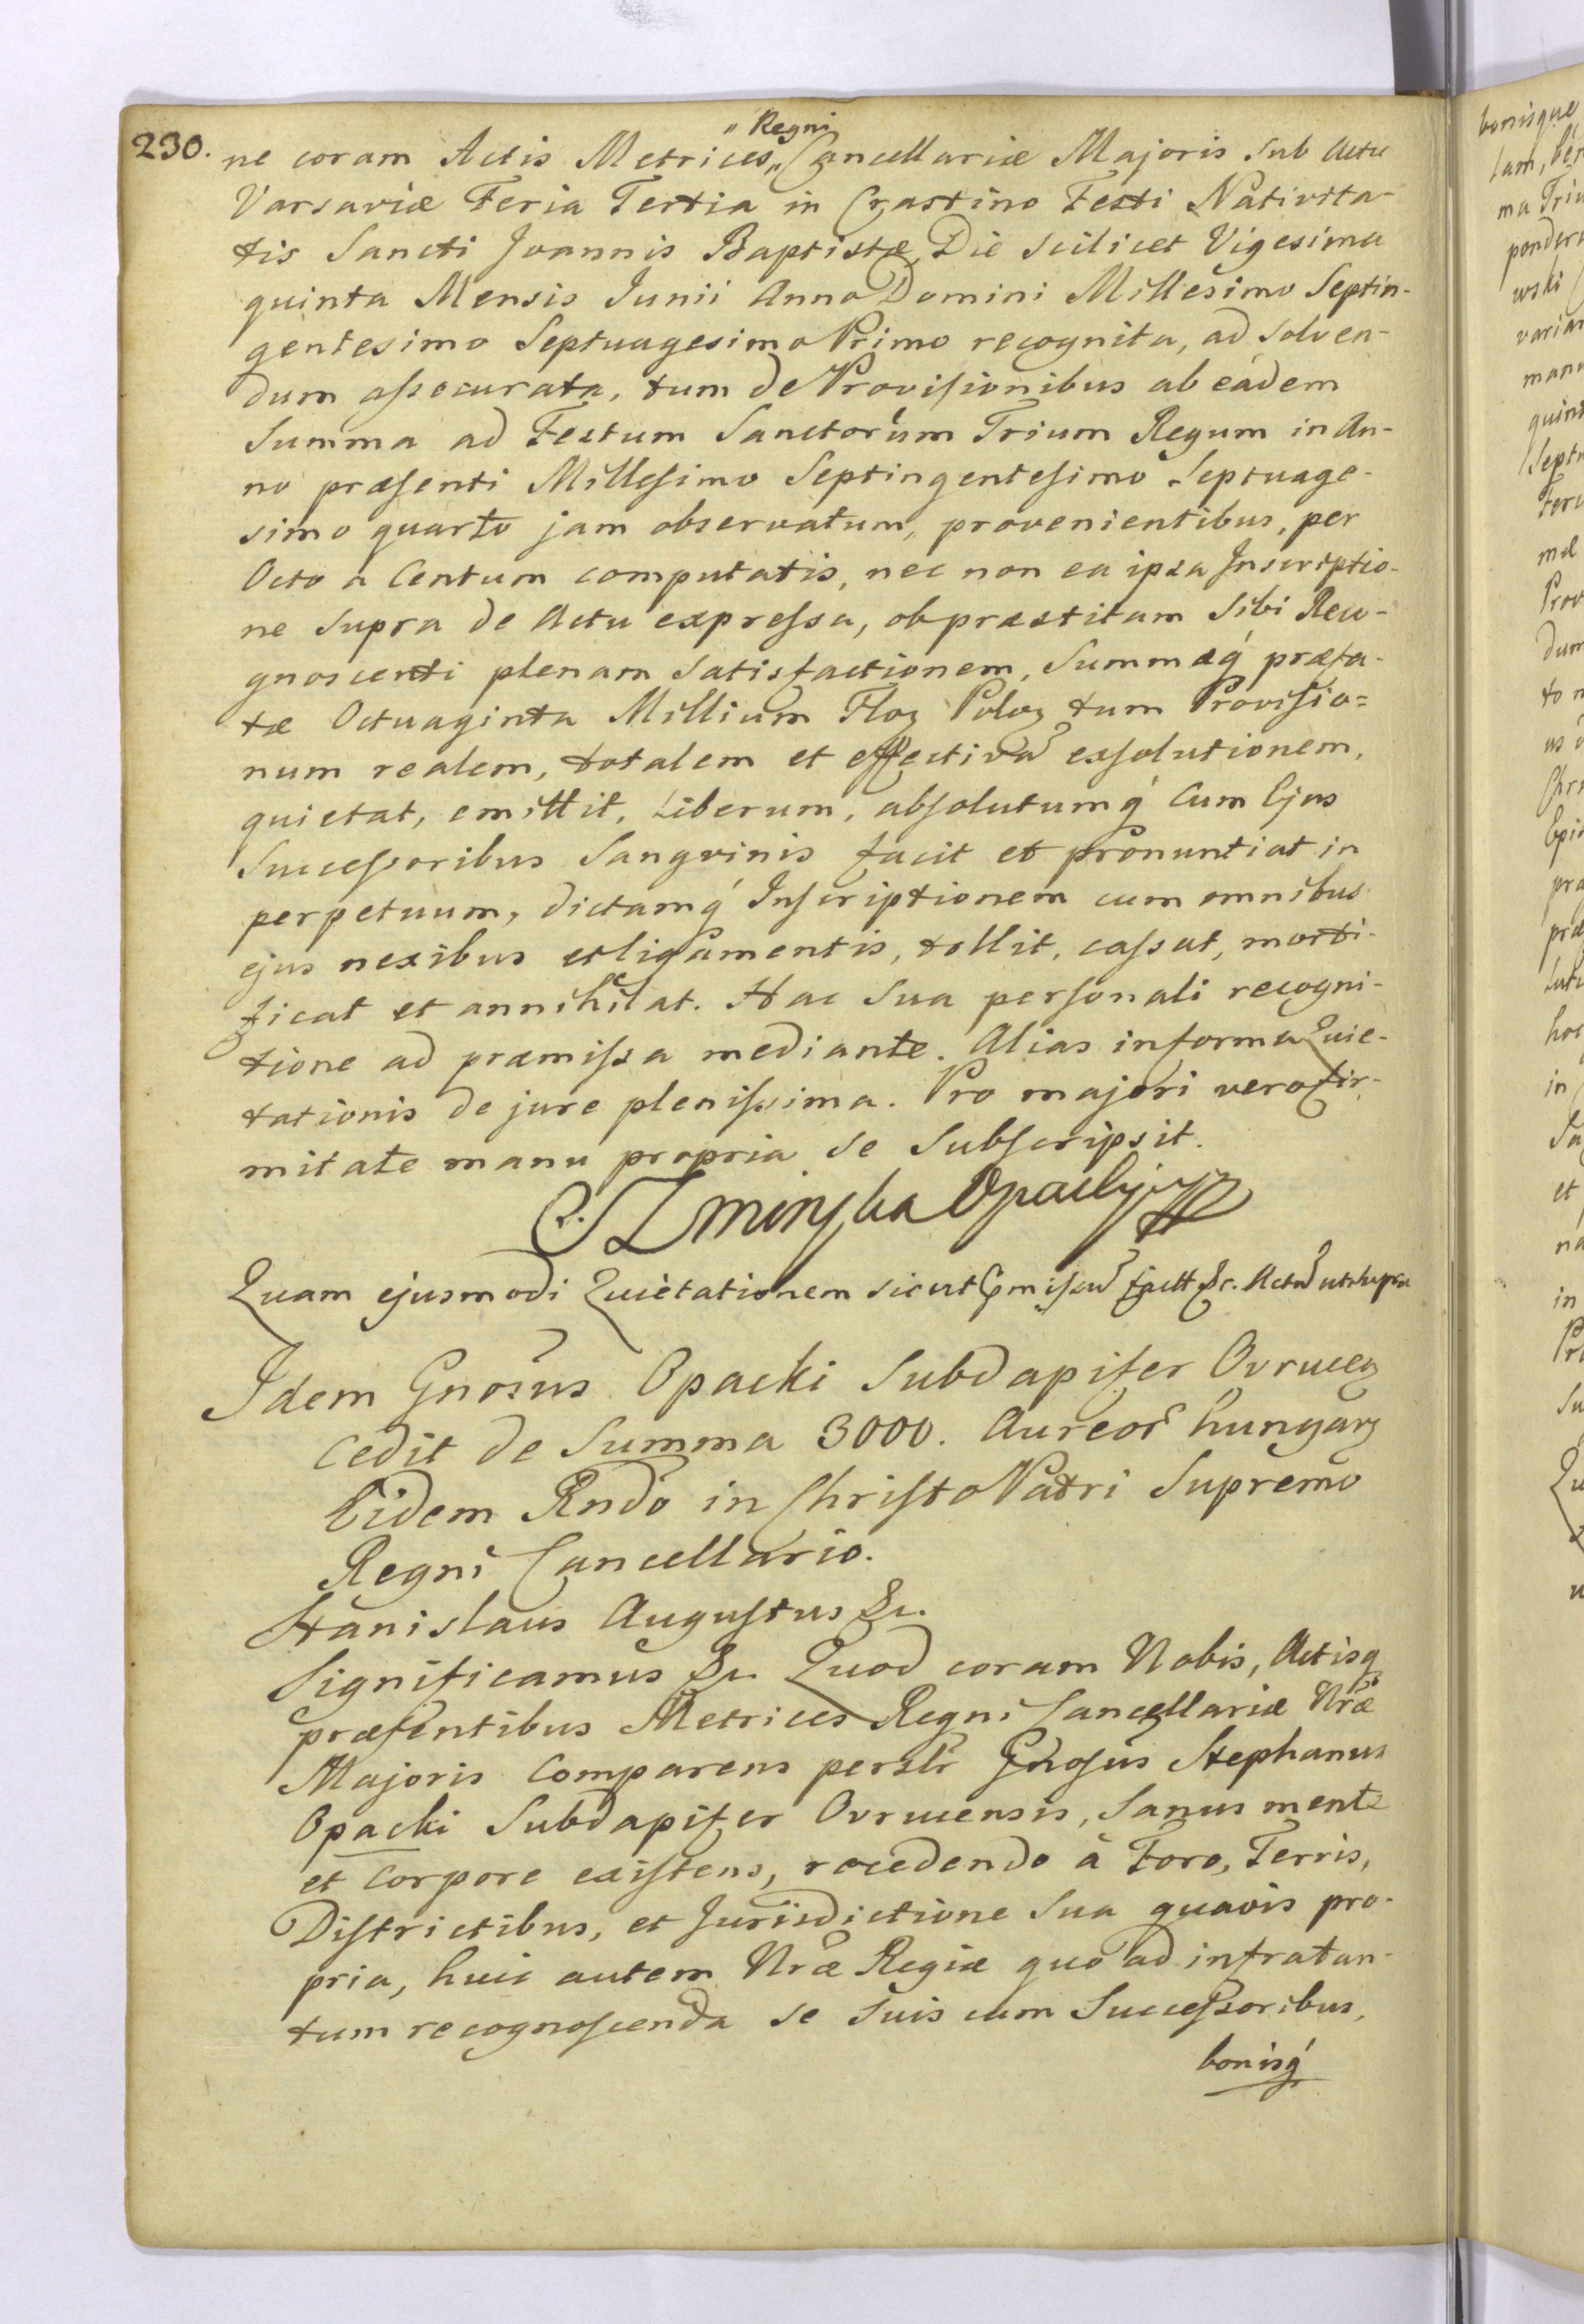 230.
ne coram Actis Metrices „Regni„ Cancellariæ Majoris Sub Actu
Varsaviæ Feria Tertia in Crastino Festi Nativita-
tis Sancti Joannis Baptistæ, Die Scilicet Vigesima
quinta Mensis Junii Anno Domini Millesimo Septin-
gentesimo Septuagesimo Primo recognita, ad Solven-
dum assecurata, tum de Provisionibus ab eadem
Summa ad Festum Sanctorum Trium Regum in An-
no præsenti Millesimo Septingentesimo Septuage-
simo quarto jam observatum, provenientibus, per
Octo a Centum computatis, nec non ea ipsa Inscriptio-
ne Supra de Actu expressa, ob præstitam Sibi Reco-
gnoscenti plenam Satisfactionem, Summæq́ præfa-
tæ Octuaginta Millium Floz Poloz tum Provisio=
num realem, totalem et effectivã exsolutionem,
quietat, emittit, Liberum, absolutumq́ Cum Ejus
Successoribus Sangvinis facit et pronuntiat in
perpetuum, dictamq́ Inscriptionem cum omnibus
ejus nexibus et ligamentis, tollit, cassat, morti-
ficat et annihilat. Hac Sua personali recogni-
tione ad præmissa mediante. Alias in forma Quie-
tationis de jure plenissima. Pro majori vero fir-
mitate manu propria Se Subscripsit.
Opacki
Quam ejusmodi Quietationem sicut &c. Actũ ut Supra
Idem Gnosus Opacki Subdapifer Ovrucen
Cedit de Summa 3000. Aureor Hungarz
Eidem Rndo in Christo Patri Supremo
Regni Cancellario.
Stanislaus Augustus &c.
Significamus &c. Quod coram Nobis, Actisq
præsentibus Metrices Regni Cancellariæ Nræ
Majoris Comparens persлr Gnosus Stephanus
Opacki Subdapifer Ovrucensis, Sanus mente
et Corpore existens, recedendo à Foro, Terris,
Districtibus, et Jurisdictione Sua quavis pro-
pria, huic autem Nræ Regiæ quo ad infra tan-
tum recognoscenda Se Suis cum Successoribus,
bonisq́